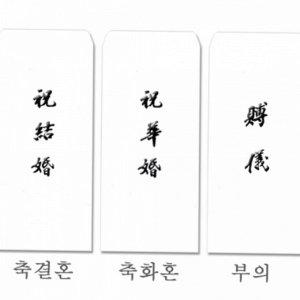 祝結婚
祝華婚
賻儀
축결혼
축화혼
부의